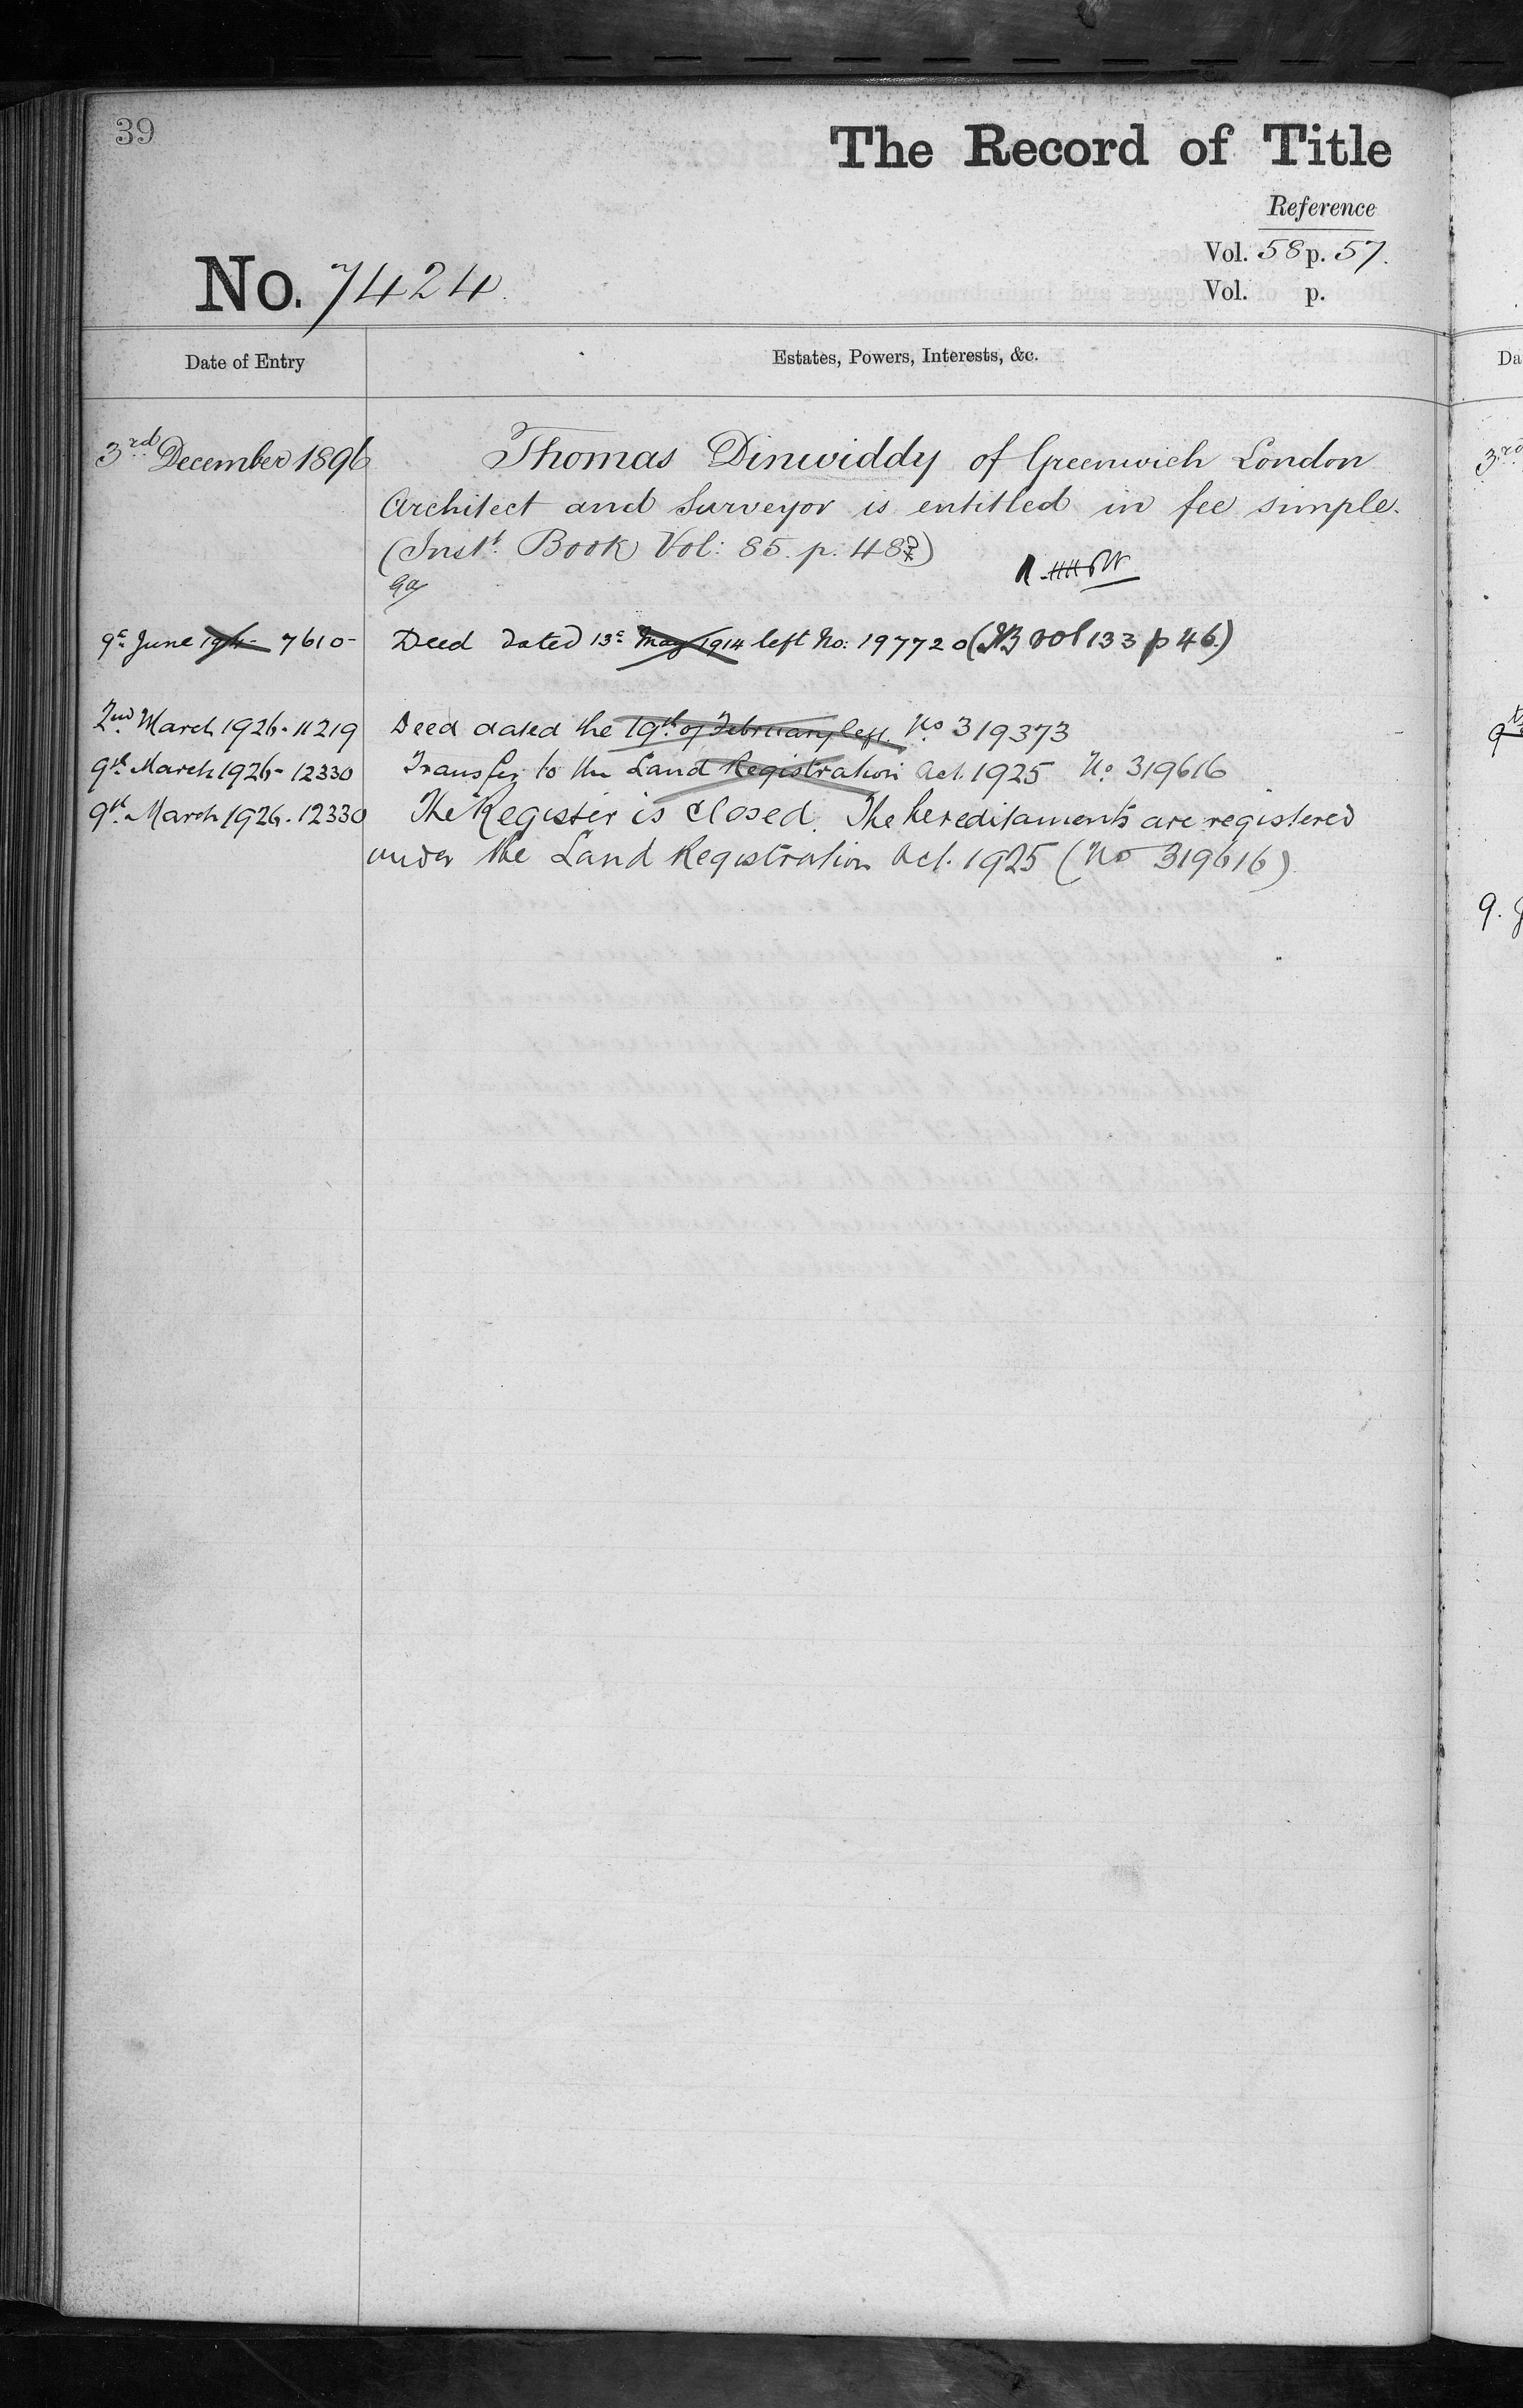 39
The Record of Title
Reference
Vol. 58 p. 57.
No. 7424.
Vol. p.
Date of Entry
Estates, Powers, Interests, &c.
3rd December 1896
Thomas Dinwiddy of Greenwich London
Architect and Surveyor is entitled in fee simple.
(Inst. Book Vol: 85. p. 48)
9 June 1914 - 7610 -
Deed dated 13 May 1914 left No: 197720 (IB vol 133 p 46.)
2nd March 1926 - 11219
Deed dated the 19th of February left. No 319373
9th March 1926 - 12330
Transfer to the Land Registration Act. 1925 No. 319616
9th March 1926. 12330
The Register is closed. The hereditaments are registered
under the Land Registration Act. 1925 (No 319616)
Da
3rd
9.